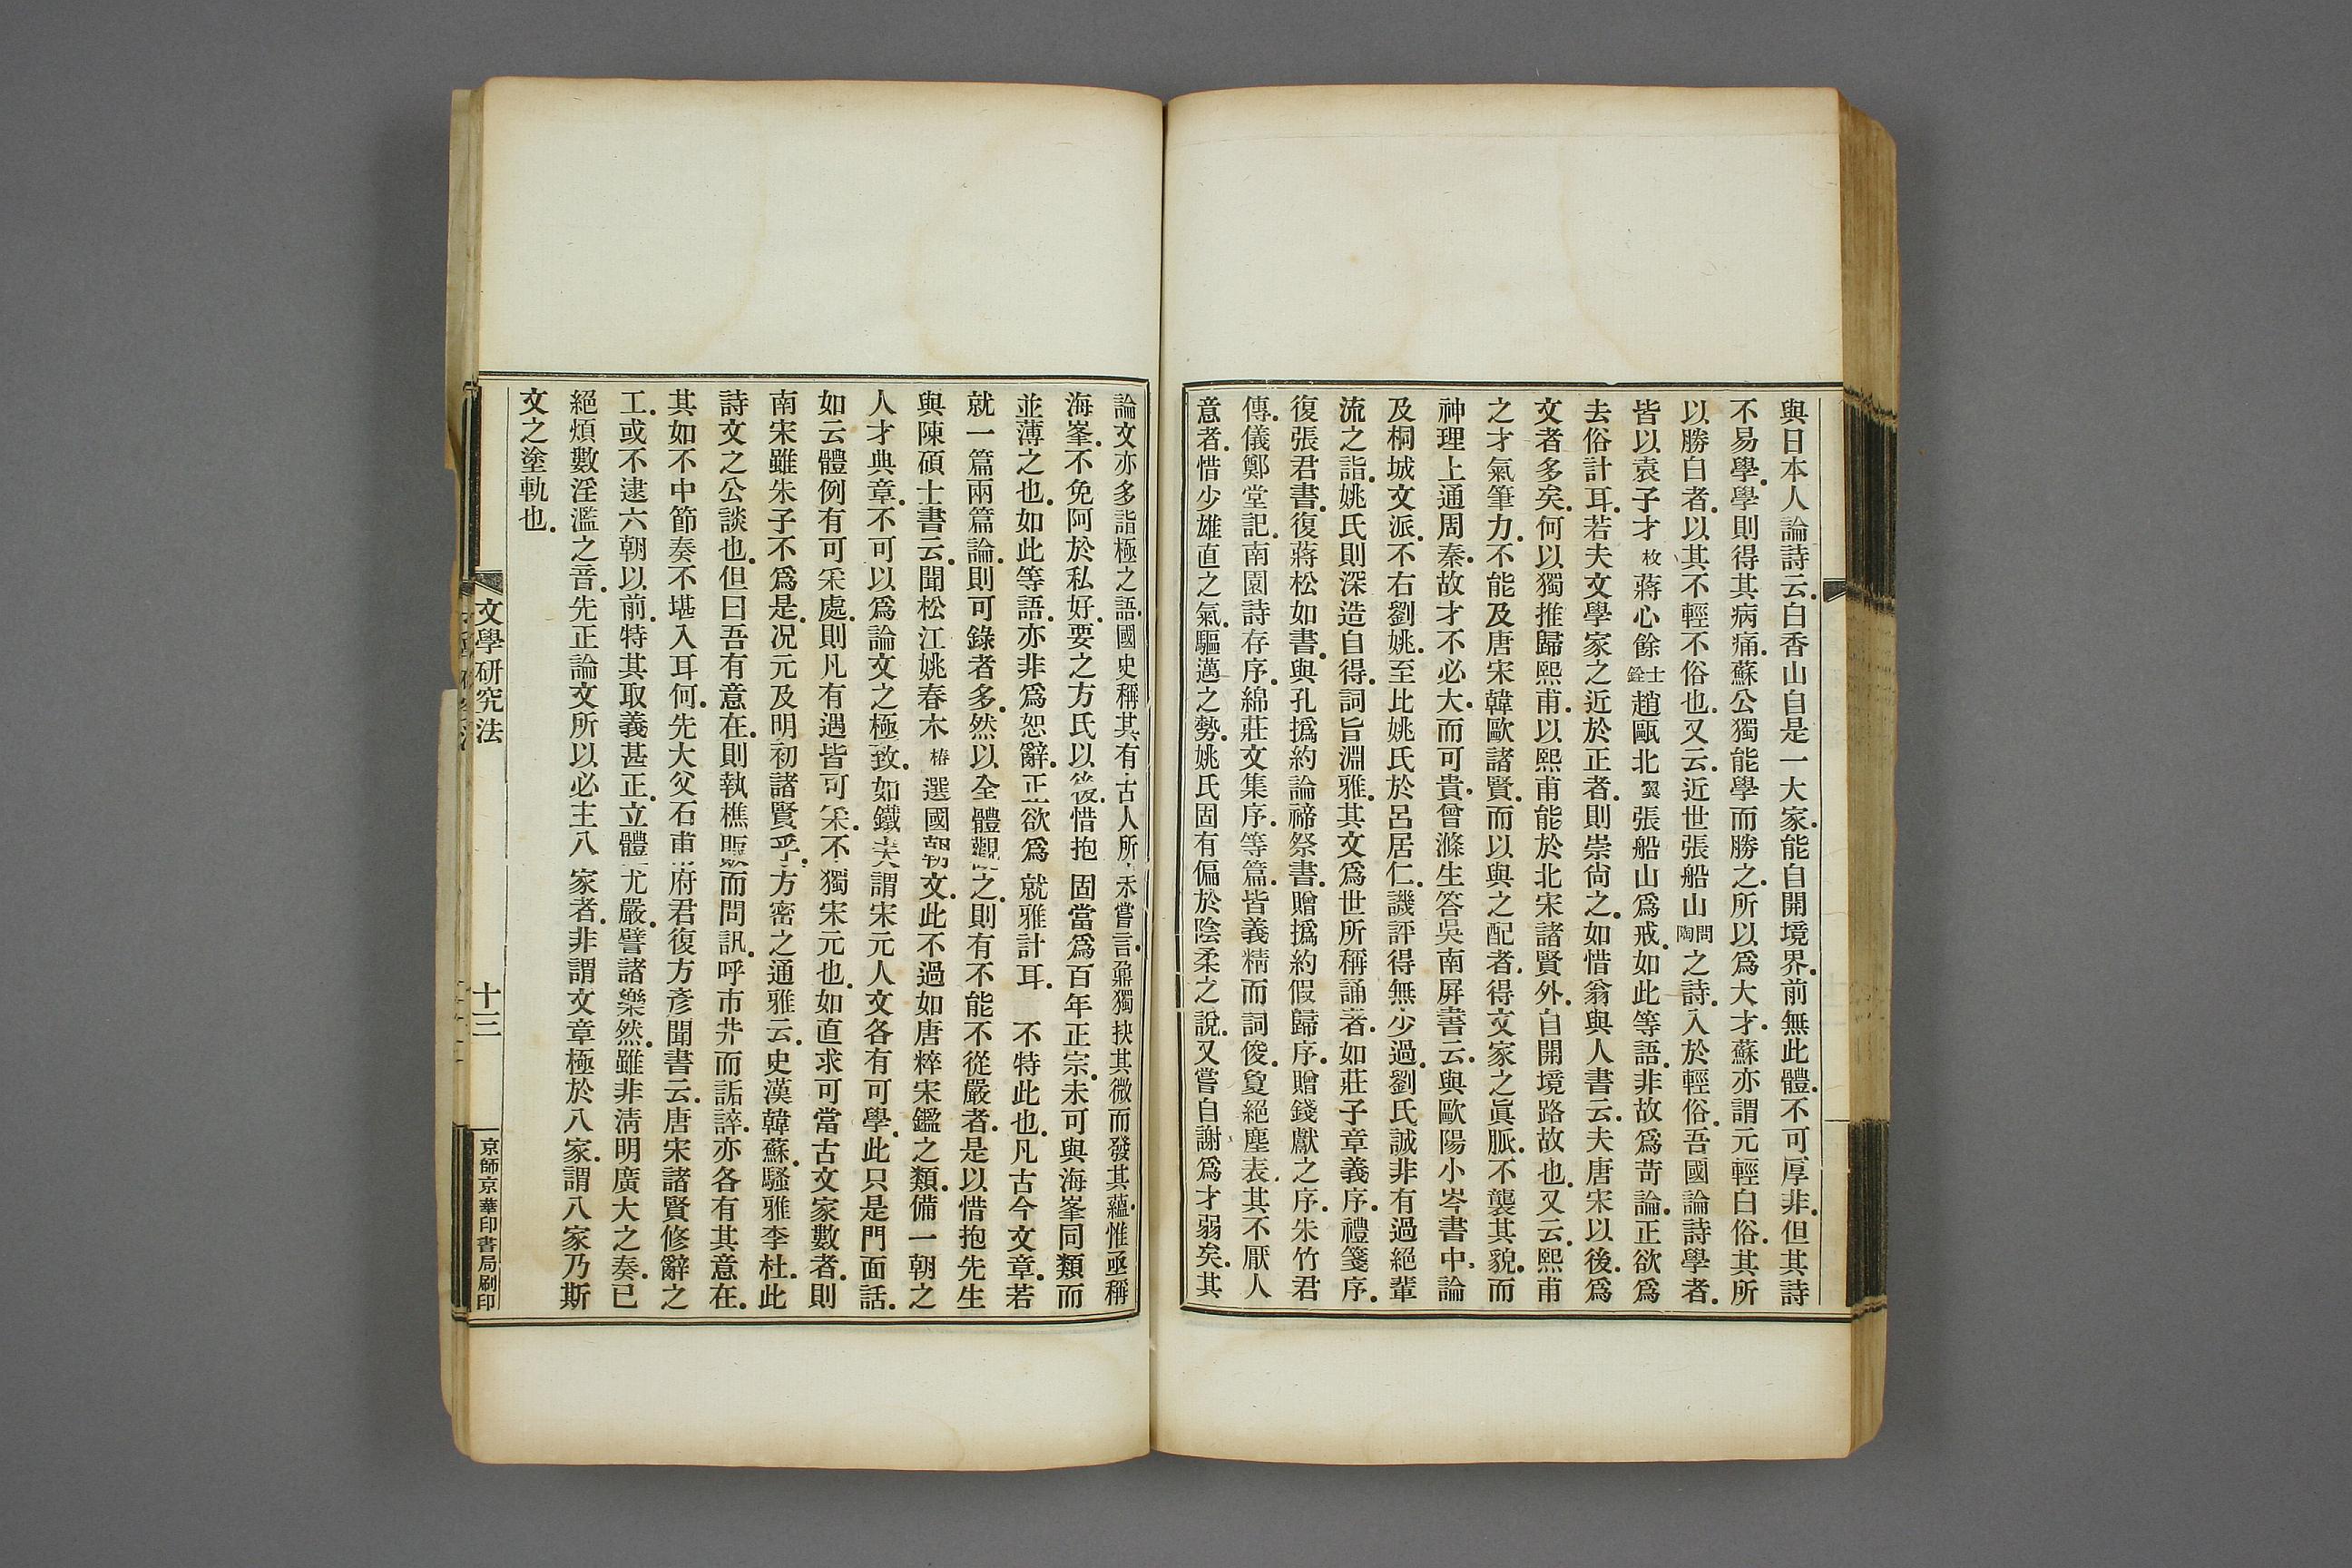 與日本人論詩云.白香山自是一大家.能自開境界.前無此體.不可厚非.但其詩
不易學.學則得其病痛.蘇公獨能學而勝之.所以爲大才.蘇亦謂元輕白俗.其所
以勝白者.以其不輕不俗也.又云.近世張船山問陶之詩.入於輕俗.吾國論詩學者.
皆以袁子才枚、蔣心餘士銓趙甌北翼張船山爲戒.如此等語.非故爲苛論.正欲爲
去俗計耳.若夫文學家之近於正者.則崇尙之.如惜翁與人書云.夫唐宋以後.爲
文者多矣.何以獨推歸熙甫.以熙甫能於北宋諸賢外.自開境路故也.又云.熙甫
之才氣筆力.不能及唐宋韓歐諸賢.而以與之配者.得文家之眞脈.不襲其貌.而
神理上通周秦.故才不必大.而可貴.曾滌生答吳南屏書云.與歐陽小岑書中.論
及桐城文派.不右劉姚.至比姚氏於呂居仁.譏評得無少過.劉氏誠非有過絕輩
流之詣.姚氏則深造自得.詞旨淵雅.其文爲世所稱誦者.如莊子章義序.禮箋序.
復張君書.復蔣松如書.與孔撝約論禘祭書.贈撝約假歸序.贈錢獻之序.朱竹君
傳.儀鄭堂記.南園詩存序.綿莊文集序.等篇.皆義精而詞俊.敻絕塵表.其不厭人
意者.惜少雄直之氣.驅邁之勢.姚氏固有偏於陰柔之說.又嘗自謝爲才弱矣.其
論文亦多詣極之語.國史稱其有古人所未嘗言.鼐獨抉其微而發其蘊.惟亟稱
海峯.不免阿於私好.要之方氏以後.惜抱固當爲百年正宗.未可與海峯同類而
並薄之也.如此等語.亦非爲恕辭.正欲爲就雅計耳.不特此也.凡古今文章.若
就一篇兩篇論.則可錄者多.然以全體觀之.則有不能不從嚴者.是以惜抱先生
與陳碩士書云.聞松江姚春木椿選國朝文.此不過如唐粹宋鑑之類.備一朝之
人才典章.不可以爲論文之極致.如鐵夫謂宋元人文各有可學.此只是門面話.
如云體例有可采處.則凡有遇皆可采.不獨宋元也.如直求可當古文家數者.則
南宋雖朱子不爲是.況元及明初諸賢乎.方密之通雅云.史漢韓蘇.騷雅李杜.此
詩文之公談也.但曰吾有意在.則執樵販而問訊.呼市井而詬誶.亦各有其意在.
其如不中節奏不堪入耳何.先大父石甫府君復方彥聞書云.唐宋諸賢修辭之
工.或不逮六朝以前.特其取義甚正.立體尤嚴.譬諸樂然.雖非淸明廣大之奏.已
絕煩數淫濫之音.先正論文所以必主八家者.非謂文章極於八家.謂八家乃斯
文之塗軌也.
文學研究法
十三
京師京華印書局刷印